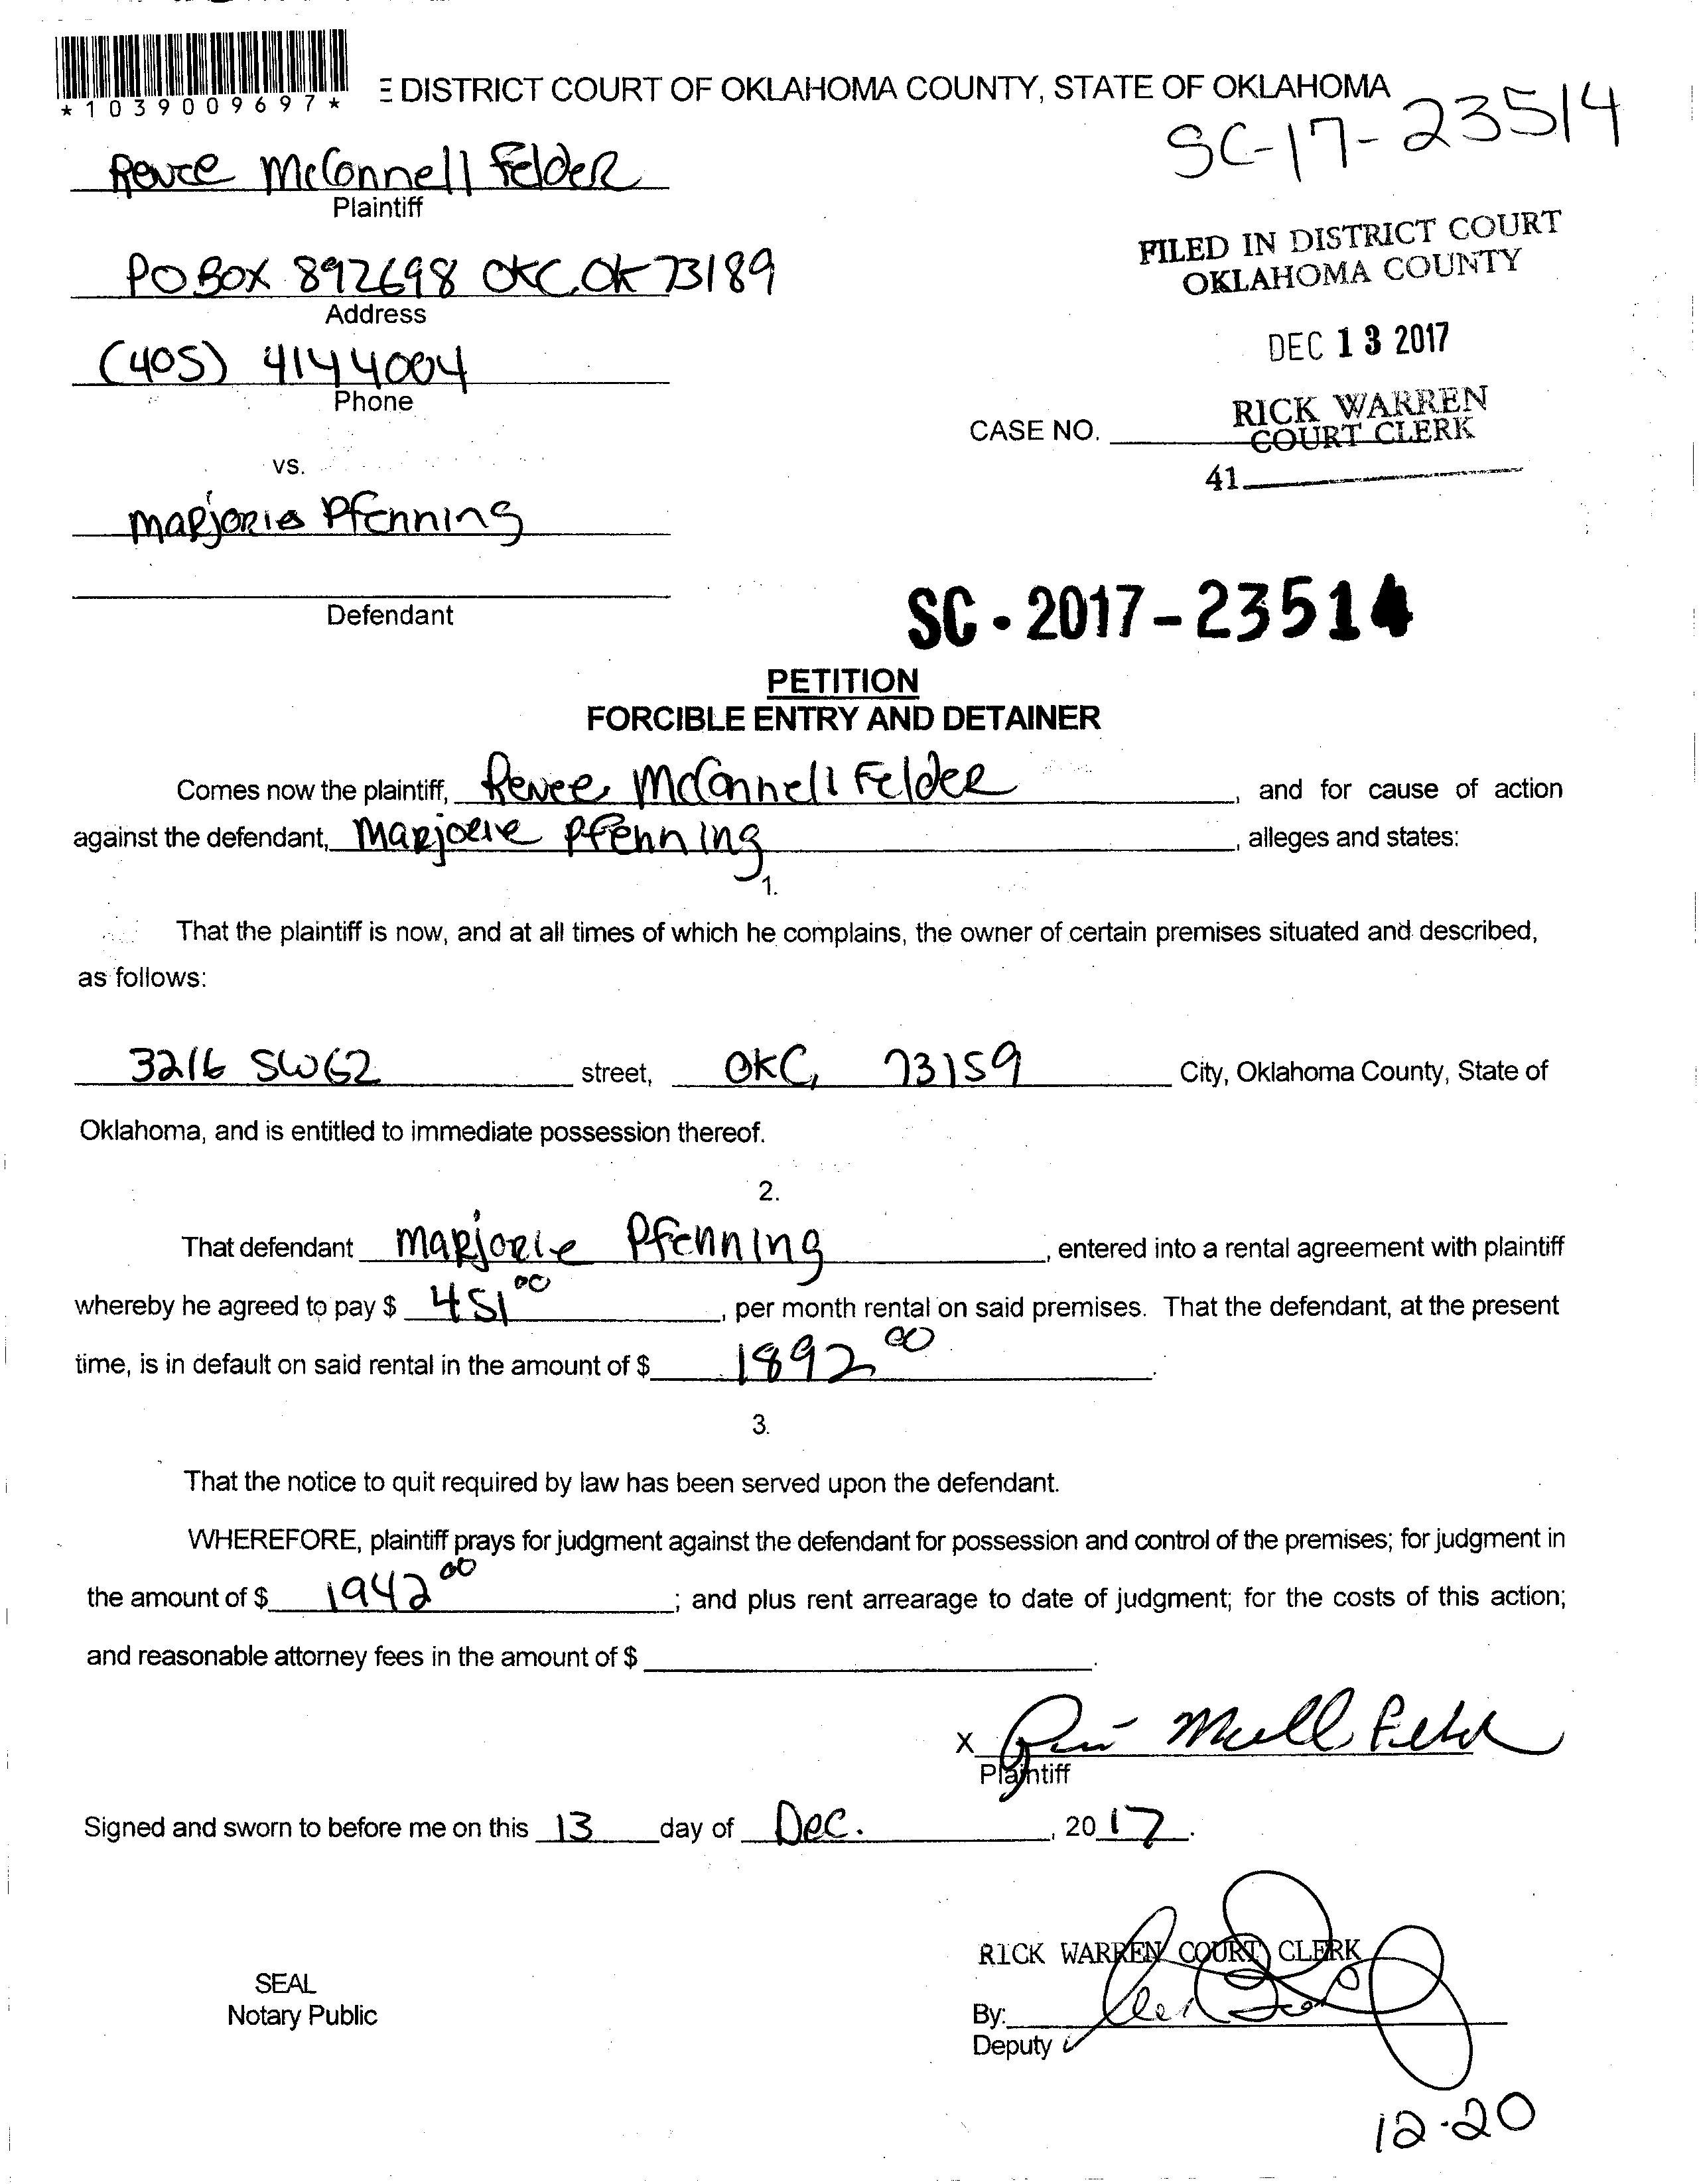 *1039009697*
E DISTRICT COURT OF OKLAHOMA COUNTY, STATE OF OKLAHOMA
SC-17-23514
Renee McConnell Felder
Plaintiff
PO BOX 892698 OKC, OK 73189
Address
(405) 414 4004
Phone
vs.
Marjorie Pfenning
Defendant
FILED IN DISTRICT COURT
OKLAHOMA COUNTY
DEC 13 2017
RICK WARREN
COURT CLERK
CASE NO.
41
SC - 2017 - 23514
PETITION
FORCIBLE ENTRY AND DETAINER
Comes now the plaintiff, Renee McConnell Felder, and for cause of action
against the defendant, Marjorie Pfenning, alleges and states:
1.
That the plaintiff is now, and at all times of which he complains, the owner of certain premises situated and described,
as follows:
3216 SW 62 street, OKC, 73159 City, Oklahoma County, State of
Oklahoma, and is entitled to immediate possession thereof.
2.
That defendant Marjorie Pfenning, entered into a rental agreement with plaintiff
whereby he agreed to pay $ 451 00, per month rental on said premises. That the defendant, at the present
time, is in default on said rental in the amount of $ 1892 00.
3.
That the notice to quit required by law has been served upon the defendant.
WHEREFORE, plaintiff prays for judgment against the defendant for possession and control of the premises; for judgment in
the amount of $ 1942 00; and plus rent arrearage to date of judgment; for the costs of this action;
and reasonable attorney fees in the amount of $ .
X
Plaintiff
Signed and sworn to before me on this 13 day of Dec., 2017.
RICK WARREN COURT CLERK
SEAL
Notary Public
By:
Deputy
12-20